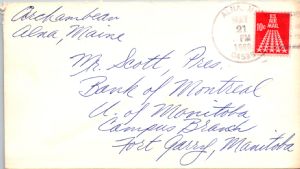 Archambeau
Alna, Maine
ALNA, M
MAY
21
PM
10c
U.S.
AIR
MAIL
Mr. Scott, Pres.
Bank of Montreal
U. of Manitoba
Campus Branch
Fort Garry, Manitoba